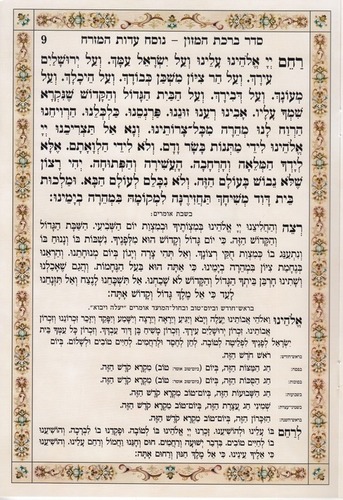 סדר ברכת המזון – נוסח עדות המזרח 9
רַחֵם יְיָ אֱלֹהֵינוּ עָלֵינוּ. וְעַל יִשְׂרָאֵל עַמָּךְ. וְעַל יְרוּשָׁלַיִם
עִירָךְ. וְעַל הַר צִיּוֹן מִשְׁכַּן כְּבוֹדָךְ. וְעַל הֵיכָלָךְ. וְעַל
מְעוֹנָךְ. וְעַל דְּבִירָךְ. וְעַל הַבַּיִת הַגָּדוֹל וְהַקָּדוֹשׁ שֶׁנִּקְרָא
שִׁמְךָ עָלָיו. אָבִינוּ רְעֵנוּ זוּנֵנוּ. פַּרְנְסֵנוּ. כַּלְכְּלֵנוּ. הַרְוִיחֵנוּ
הַרְוַח לָנוּ מְהֵרָה מִכָּל־צָרוֹתֵינוּ. וְנָא אַל תַּצְרִיכֵנוּ יְיָ
אֱלֹהֵינוּ לִידֵי מַתְּנוֹת בָּשָׂר וָדָם. וְלֹא לִידֵי הַלְוָאָתָם. אֶלָּא
לְיָדְךָ הַמְּלֵאָה וְהָרְחָבָה. הָעֲשִׁירָה וְהַפְּתוּחָה. יְהִי רָצוֹן
שֶׁלֹּא נֵבוֹשׁ בָּעוֹלָם הַזֶּה. וְלֹא נִכָּלֵם לָעוֹלָם הַבָּא. וּמַלְכוּת
בֵּית דָּוִד מְשִׁיחָךְ תַּחֲזִירֶנָּה לִמְקוֹמָהּ בִּמְהֵרָה בְיָמֵינוּ:
בשבת אומרים:
רְצֵה וְהַחֲלִיצֵנוּ יְיָ אֱלֹהֵינוּ בְּמִצְוֹתֶיךָ וּבְמִצְוַת יוֹם הַשְּׁבִיעִי. הַשַּׁבָּת הַגָּדוֹל
וְהַקָּדוֹשׁ הַזֶּה. כִּי יוֹם גָּדוֹל וְקָדוֹשׁ הוּא מִלְּפָנֶיךָ. נִשְׁבּוֹת בּוֹ וְנָנוּחַ בּוֹ
וְנִתְעַנֵּג בּוֹ כְּמִצְוַת חֻקֵּי רְצוֹנָךְ. וְאַל תְּהִי צָרָה וְיָגוֹן בְּיוֹם מְנוּחָתֵנוּ. וְהַרְאֵנוּ
בְּנֶחָמַת צִיּוֹן בִּמְהֵרָה בְיָמֵינוּ. כִּי אַתָּה הוּא בַּעַל הַנֶּחָמוֹת. וַהֲגַם שֶׁאָכַלְנוּ
וְשָׁתִינוּ חָרְבַּן בֵּיתְךָ הַגָּדוֹל וְהַקָּדוֹשׁ לֹא שָׁכַחְנוּ. אַל תִּשְׁכָּחֵנוּ לָנֶצַח וְאַל תִּזְנָחֵנוּ
לָעַד כִּי אֵל מֶלֶךְ גָּדוֹל וְקָדוֹשׁ אָתָּה:
בראש חודש וביום טוב ובחול המועד אומרים יעלה ויבוא:
אֱלֹהֵינוּ וֵאלֹהֵי אֲבוֹתֵינוּ יַעֲלֶה וְיָבֹא וְיַגִּיעַ וְיֵרָאֶה וְיֵרָצֶה וְיִשָּׁמַע וְיִפָּקֵד וְיִזָּכֵר זִכְרוֹנֵנוּ וְזִכְרוֹן
אֲבוֹתֵינוּ. זִכְרוֹן יְרוּשָׁלַיִם עִירָךְ. וְזִכְרוֹן מָשִׁיחַ בֶּן דָּוִד עַבְדָּךְ. וְזִכְרוֹן כָּל עַמְּךָ בֵּית
יִשְׂרָאֵל לְפָנֶיךָ לִפְלֵיטָה לְטוֹבָה. לְחֵן לְחֶסֶד וּלְרַחֲמִים. לְחַיִּים טוֹבִים וּלְשָׁלוֹם. בְּיוֹם
רֹאשׁ חֹדֶשׁ הַזֶּה.
חַג הַמַּצּוֹת הַזֶּה, בְּיוֹם טוֹב) מִקְרָא קֹדֶשׁ הַזֶּה.
חַג הַסֻּכּוֹת הַזֶּה, בְּיוֹם טוֹב) מִקְרָא קֹדֶשׁ הַזֶּה.
חַג הַשָּׁבוּעוֹת הַזֶּה, בְּיוֹם־טוֹב מִקְרָא קֹדֶשׁ הַזֶּה.
שְׁמִינִי חַג עֲצֶרֶת הַזֶּה, בְּיוֹם־טוֹב מִקְרָא קֹדֶשׁ הַזֶּה.
הַזִּכָּרוֹן הַזֶּה, בְּיוֹם־טוֹב מִקְרָא קֹדֶשׁ הַזֶּה.
לְרַחֵם בּוֹ עָלֵינוּ וּלְהוֹשִׁיעֵנוּ. זָכְרֵנוּ יְיָ אֱלֹהֵינוּ בּוֹ לְטוֹבָה. וּפָקְדֵנוּ בוֹ לִבְרָכָה. וְהוֹשִׁיעֵנוּ
בוֹ לְחַיִּים טוֹבִים. בִּדְבַר יְשׁוּעָה וְרַחֲמִים. חוּס וְחָנֵּנוּ וַחֲמוֹל וְרַחֵם עָלֵינוּ. וְהוֹשִׁיעֵנוּ
כִּי אֵלֶיךָ עֵינֵינוּ. כִּי אֵל מֶלֶךְ חַנּוּן וְרַחוּם אָתָּה: